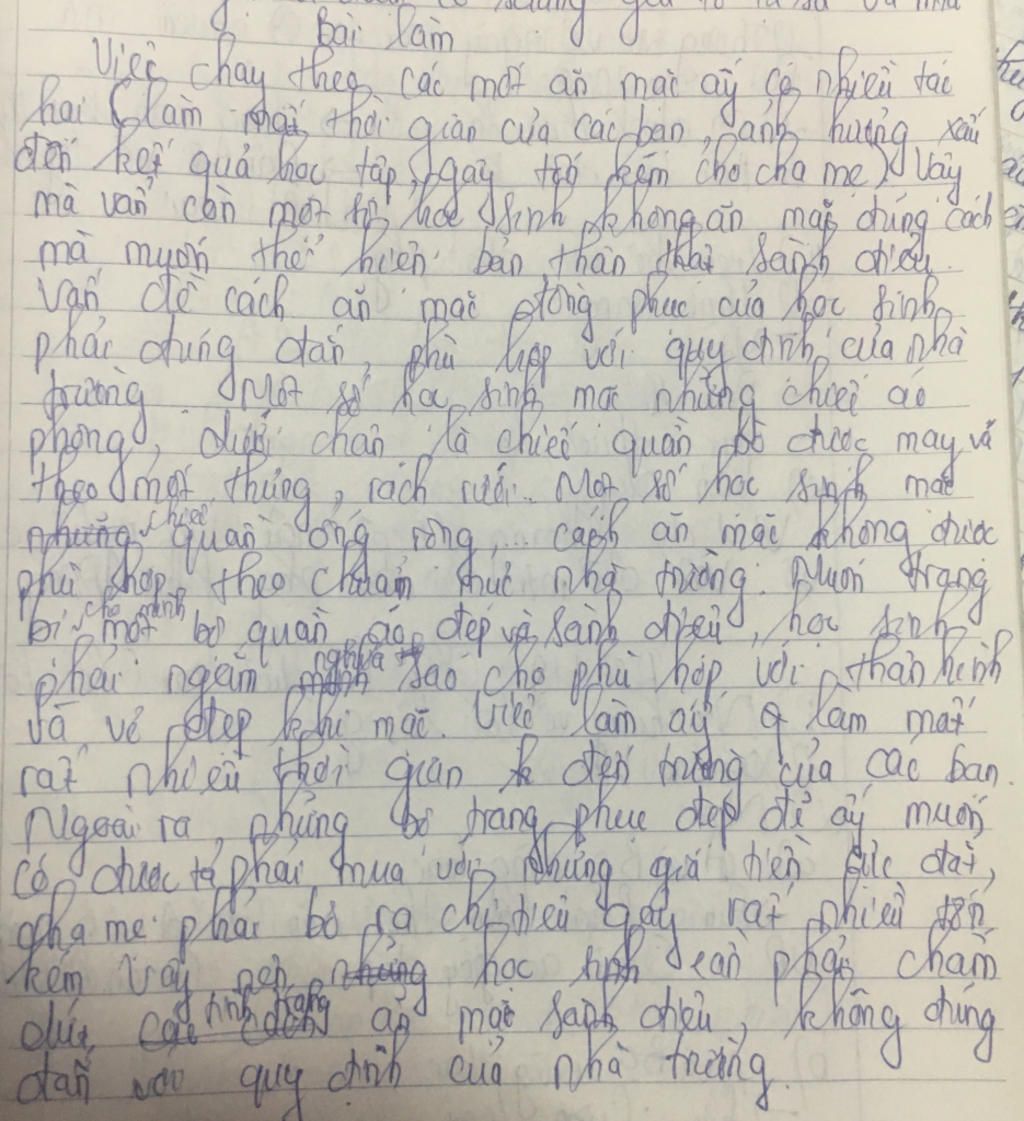 Bài làm
Việc chạy theo các mốt ăn mặc ấy có nhiều tác
hại (làm mất thời gian của các bạn, ảnh hưởng xấu
đến kết quả học tập, gây tốn kém cho cha mẹ) Vậy
mà vẫn còn một số học sinh không ăn mặc đúng cách
mà muốn thể hiện bản thân thật sành điệu.
Vấn đề cách ăn mặc đồng phục của học sinh
phải đúng đắn, phù hợp với quy định của nhà
trường. Một số học sinh mặc những chiếc áo
phông, dưới chân là chiếc quần bò được may vá
theo mốt thủng, rách rưới.. Một số học sinh mặc
chiếc quần ống rộng,... cách ăn mặc không được
phù hợp theo chuẩn mực nhà trường. Muốn trang
bị cho mình một bộ quần áo đẹp và sành điệu, học sinh
phải ngắm nghía sao cho phù hợp với thân hình
và vẻ đẹp khi mặc. Việc làm ấy làm mất
rất nhiều thời gian đến trường của các bạn.
Ngoài ra, những bộ trang phục đẹp đẽ ấy muốn
có được ta phải mua với những giá tiền đắt,
cha mẹ phải bỏ ra chi tiêu gây rất nhiều tốn
kém Vậy nên học sinh cần phải chấm
dứt tình trạng ăn mặc sành điệu, không đúng
đắn vào quy định của nhà trường.